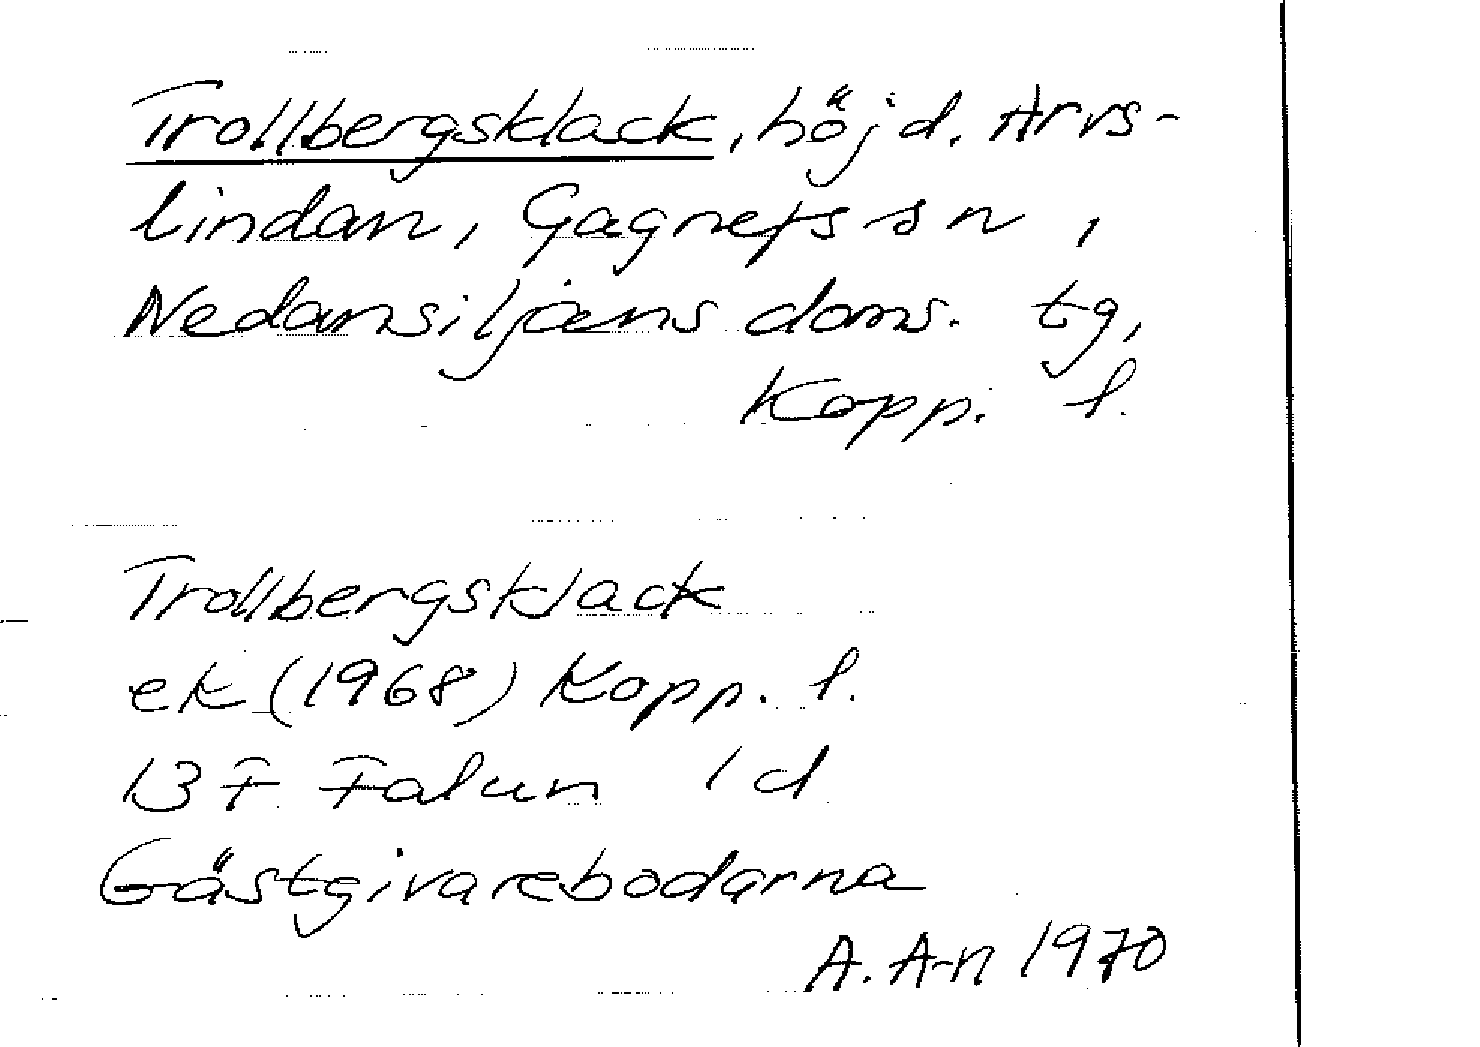 Trollbergsklack, höjd. Arvs-
lindan, Gagnefs sn,
Nedansiljans doms. tg,
Kopp. l.
Trollbergsklack
ek (1968) Kopp. l.
13 F Falun 1 d
Gästgivarebodarna
A. A-n 1970